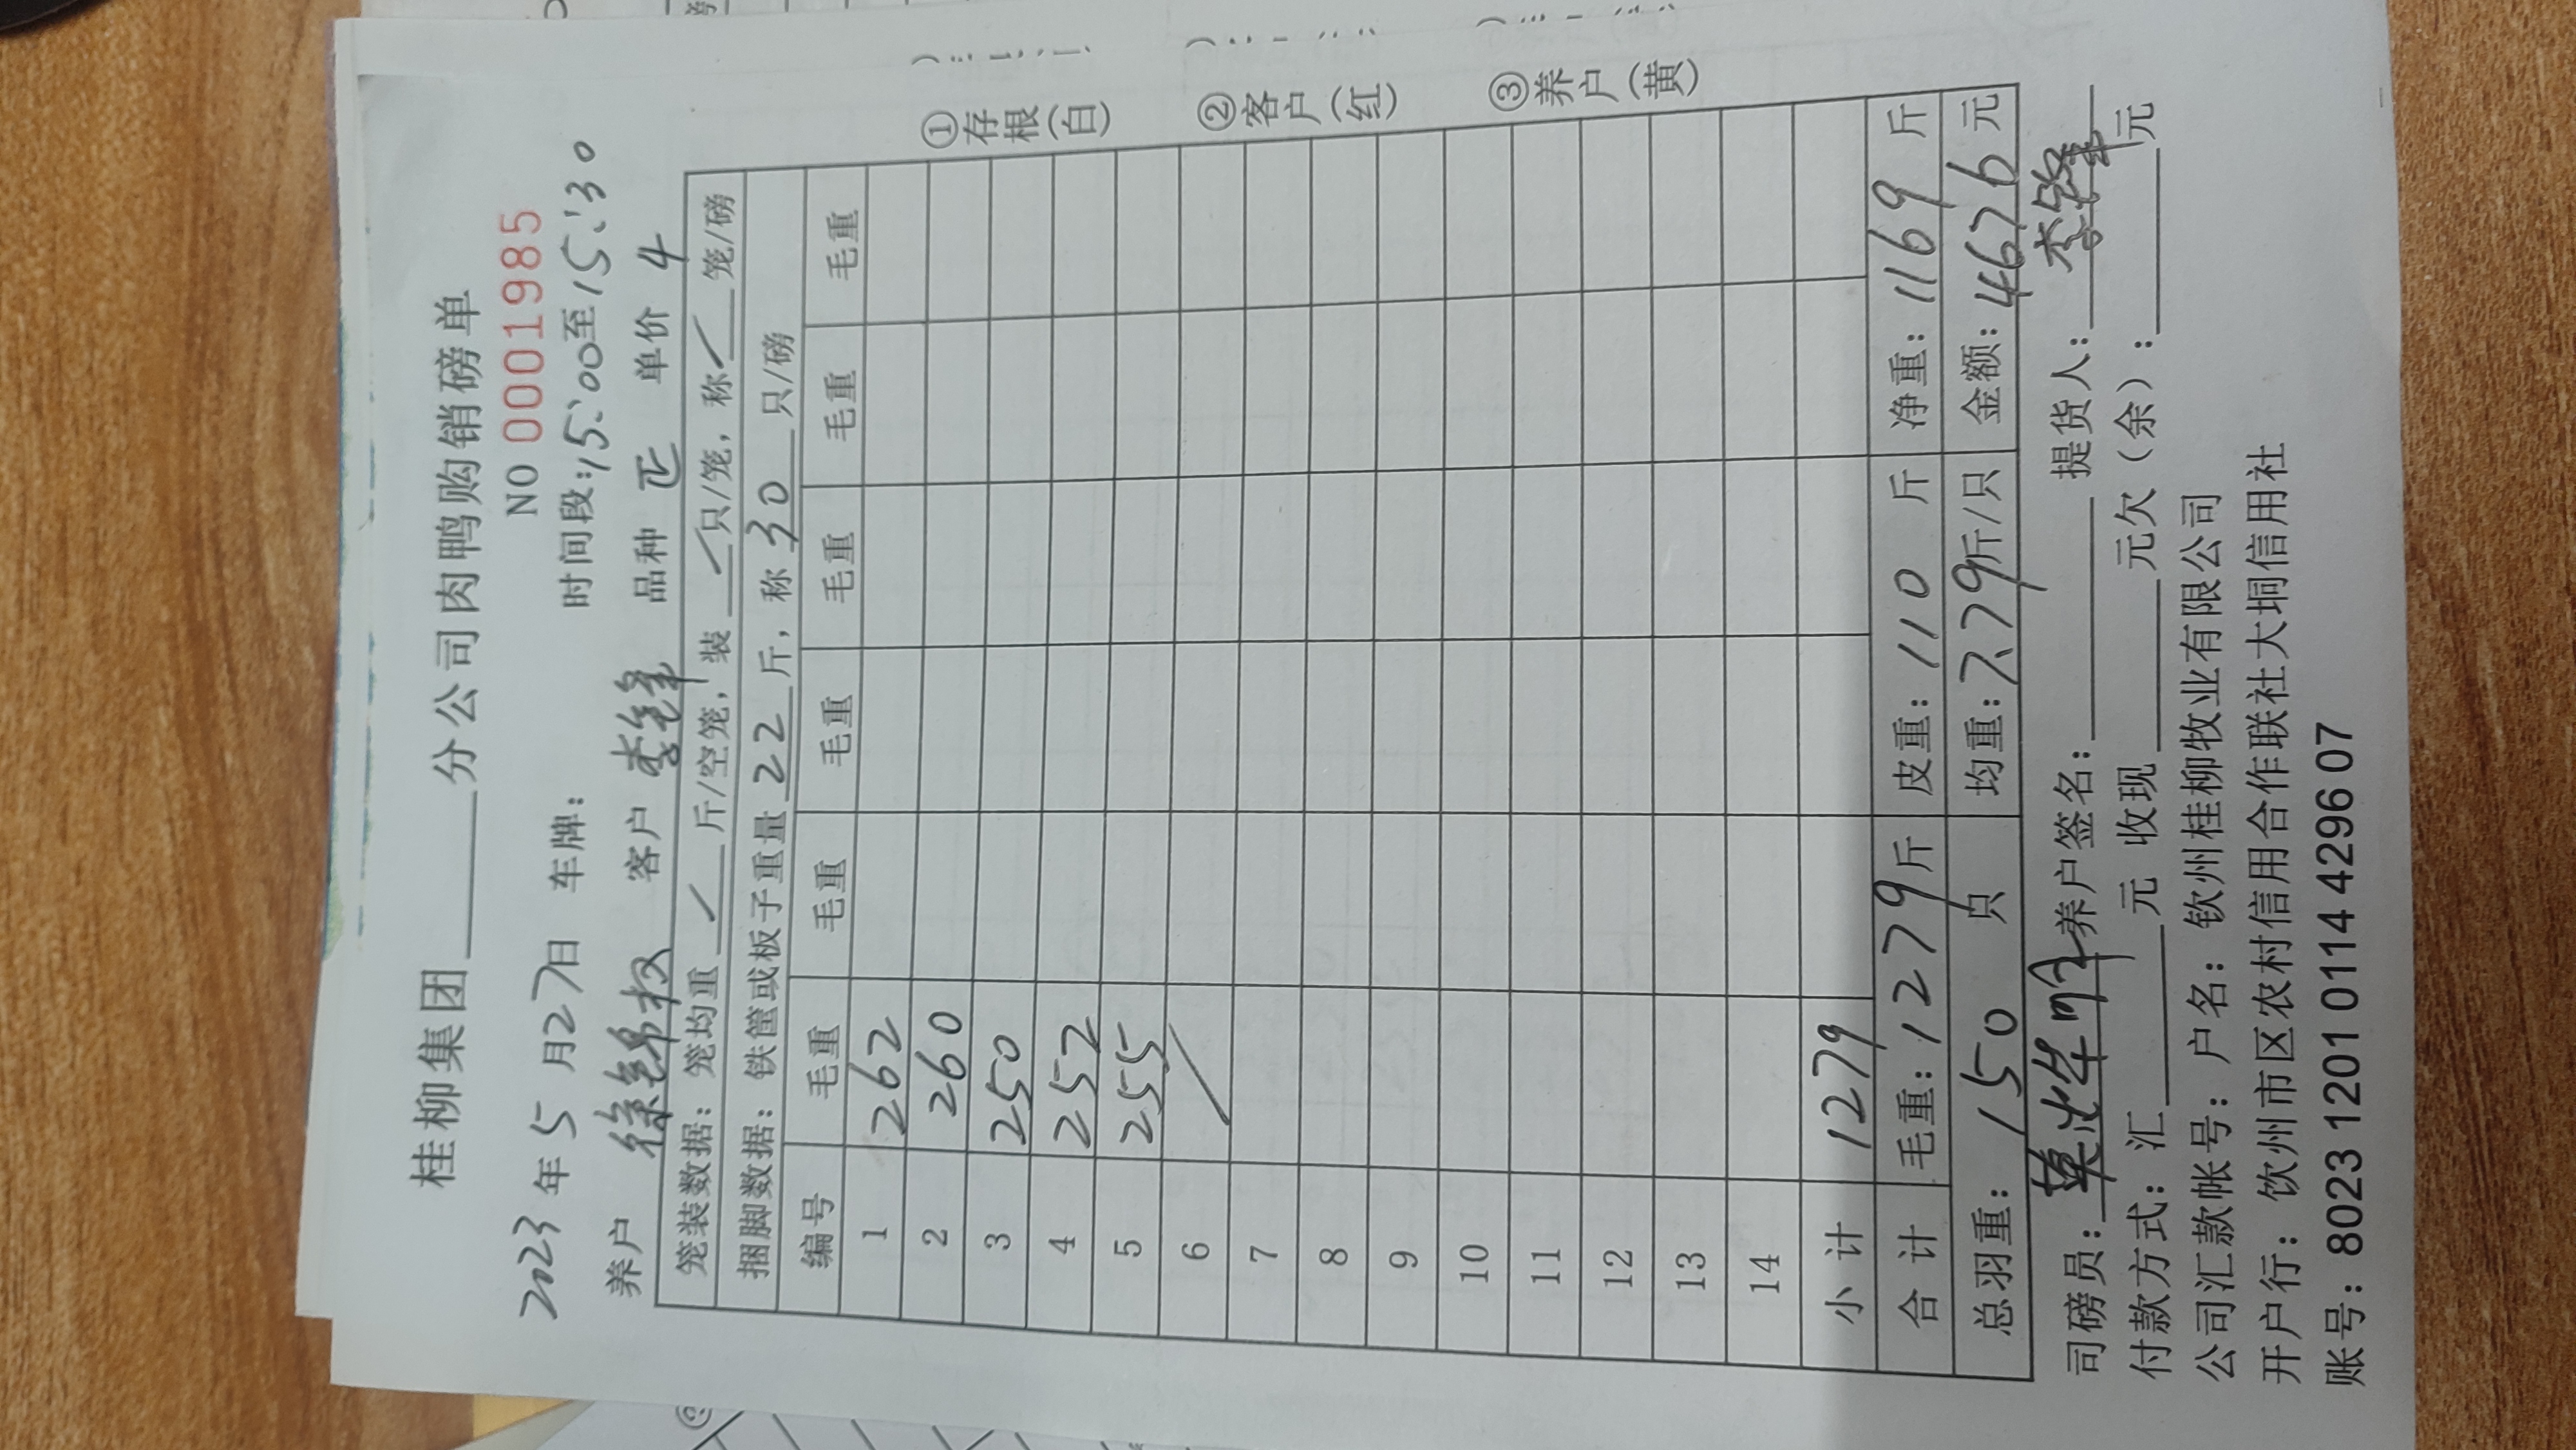 桂柳集团______分公司肉鸭购销磅单
NO 0001985
2023年5月27日 车牌: 时间段:15:00至15:30
养户 徐锦权 客户 李锋 品种 正 单价 4
笼装数据: 笼均重 ✓ 斤/空笼, 装 ✓ 只/笼, 称 ✓ 笼/磅
捆脚数据: 铁筐或板子重量 22 斤, 称 30 只/磅
编号 毛重 毛重 毛重 毛重 毛重 毛重
1 262
2 260
3 250
4 252
5 255
6 /
7
8
9
10
11
12
13
14
小计 1279
合计 毛重: 1279斤 皮重: 110 斤 净重: 1169 斤
总羽重: 150 只 均重: 7.79斤/只 金额: 4676 元
司磅员: 养户签名: 提货人: 李锋
付款方式: 汇______元 收现______元欠(余):______元
公司汇款帐号: 户名: 钦州桂柳牧业有限公司
开户行: 钦州市区农村信用合作联社大垌信用社
账号: 8023 1201 0114 4296 07
①存根(白)
②客户(红)
③养户(黄)